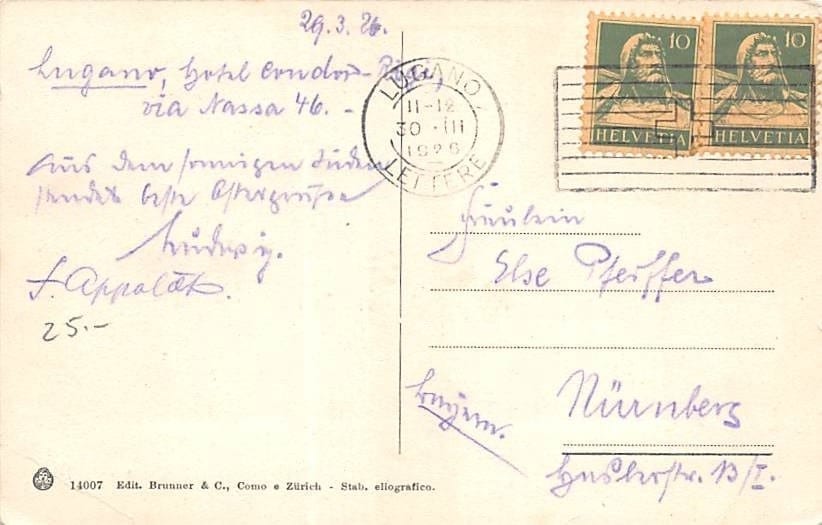 29.3.26.
Lugano, Hotel Condor-Rigi,
via Nassa 46. -
Aus dem sonnigen Süden
sendet beste Ostergrüsse
Ludwig.
25.-
LUGANO
11-12
30·III
1926
LETTERE
10
HELVETIA
10
HELVETIA
Fräulein
Else Pfeiffer
Nürnberg
Bayern.
13/I.
14007 Edit. Brunner & C., Como e Zürich - Stab. eliografico.